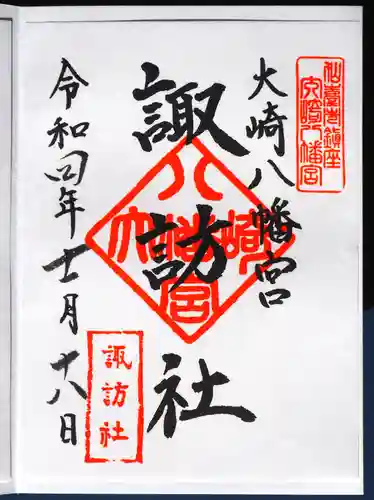 仙臺鎮座
大崎八幡宮
大崎八幡宮
諏訪社
大崎八幡宮
諏訪社
令和四年十一月十八日